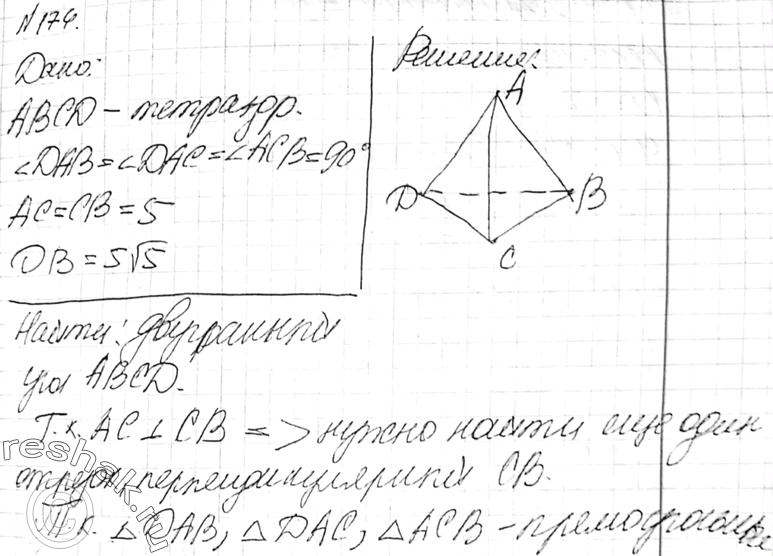 №174.
Дано:
ABCD – тетраэдр.
∠DAB=∠DAC=∠ACB=90°
AC=CB=5
DB=5√5
Решение:
A
D
B
C
Найти: двугранный
угол ABCD.
Т.к. AC⊥CB => нужно найти еще один
отрезок, перпендикулярный CB.
Т.к. △DAB, △DAC, △ACB – прямоугольные
reshak.ru